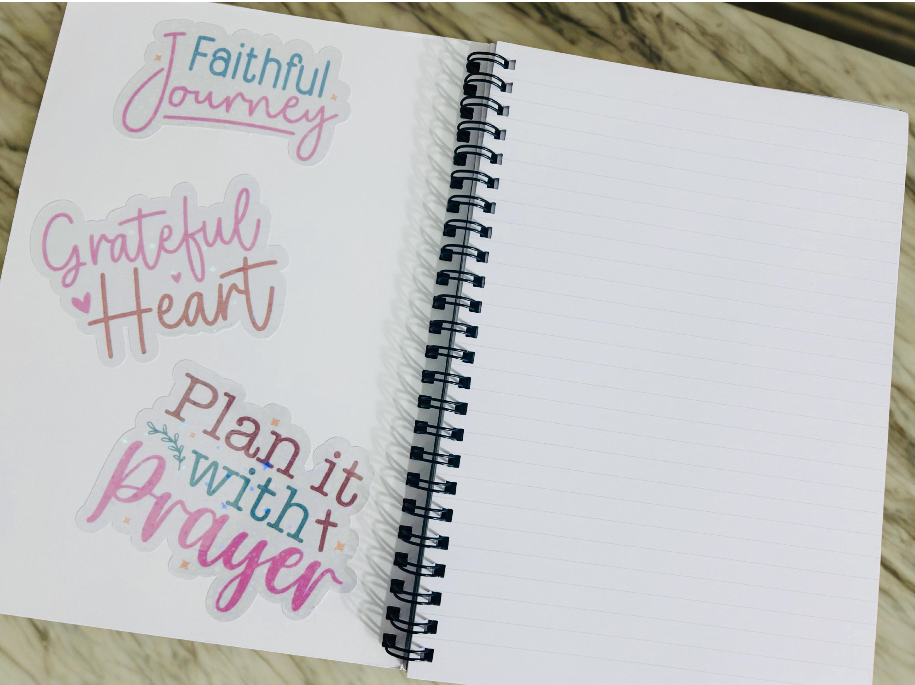 Faithful
Journey
Grateful
Heart
Plan it
with
Prayer